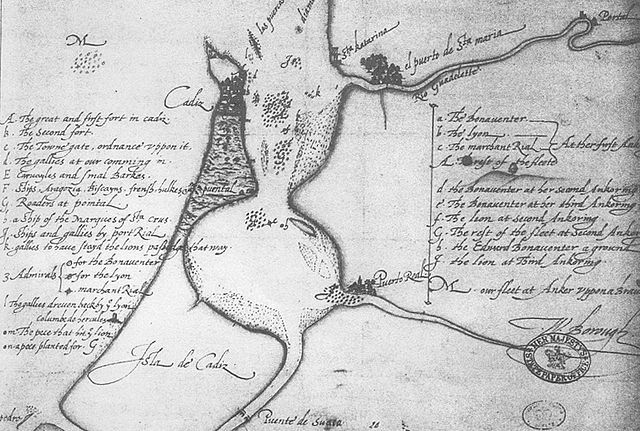 las puercas
diamante
Portal
Sta katarina
el puerto de Sta maria
Rio Guadelette
M
Cadiz
A. The great and first fort in cadiz
b. The second fort.
c. The Towne gate, ordnance vppon it.
d. The gallies at our comming in.
E Caruoyles and smal Barkes.
F. Ships, Aragozia, Biscayns, frensh, hulkes
puental
G. Roaders at pointal
i. a Ship of the Marques of Sta crus.
J. Ships and gallies by port Rial.
K gallies to haue stayd the lions passage that way
3 Admirals
for the Bonaventer
for the Lyon
marchant Rial
l The gallies dreuen back by ye lyon
columbe de hercules
m The pece that hit ye lion
n a pece planted for G
a. The Bonauenter
b. The Lyon
c The marchant Rial
At her first An
A. The rest of the fleete
d the Bonauenter at her second Ankoring
e The Bonauenter at her third Ankoring
f. The lion at second Ankoring
G. The rest of the fleet at Second Ankor
h. the Edward Bonauenter a ground
J the lion at Third Ankoring
M our fleet at Anker vppon a Braue
Puerto Real
Wm Borough
HER MAJESTYS STATE PAPER OFFICE
Isla de Cadiz
Puente de Suaço
pedro